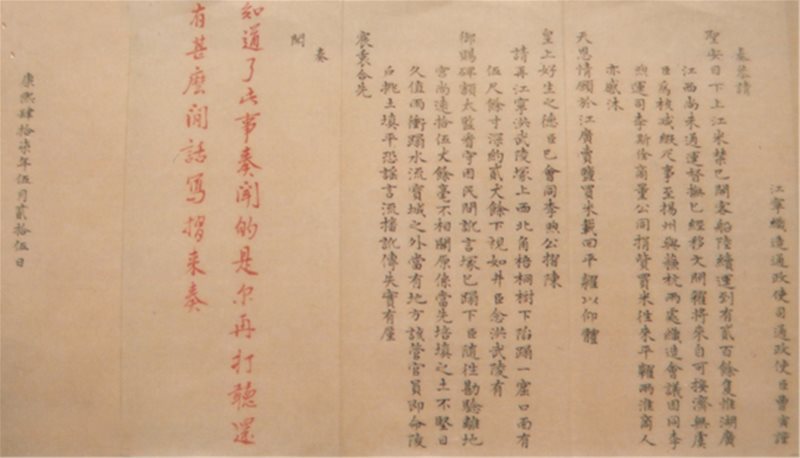 江寧織造通政使司通政使臣曹寅謹
奏恭請
聖安目下上江米禁已開客船陸續運到有貳百餘隻惟湖廣
江西尚未通運督撫已經移文開糴將來自可接濟無虞
臣爲核減緞疋事至揚州與蘓杭兩處織造會議因同李
煦運司李斯佺商量公同捐貲買米往來平糶兩淮商人
亦感沐
天恩情願於江廣賣鹽買米載回平糶以仰體
皇上好生之德臣已會同李煦公摺陳
請再江寧洪武陵塚上西北角梧桐樹下陷蹋一窟口面有
伍尺餘寸深約貳丈餘下視如井臣念洪武陵有
御賜碑額太監看守因民間訛言塚已蹋下臣隨往勘驗離地
宮尚遠拾伍丈餘毫不相關原係當先培填之土不堅日
久值雨衝蹋水流寶城之外當有地方該管官員即命陵
戶挑土填平恐謠言流播訛傳失實有廑
宸衷合先
奏
聞
知道了此事奏聞的是尔再打聽還
有甚麽閒話寫摺来奏
康熙肆拾柒年伍月貳拾伍日